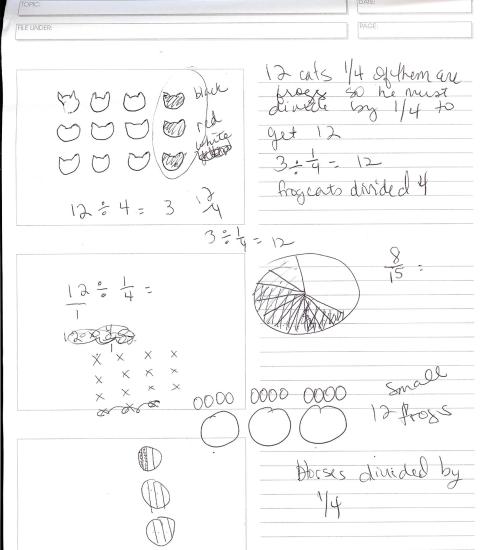 TOPIC:
DATE:
FILE UNDER:
PAGE:
black
red
white
12 ÷ 4 = 3
12/4
3 ÷ 1/4 = 12
12 cats 1/4 of them are
frogs so he must
divide by 1/4 to
get 12
3 ÷ 1/4 = 12
frogcats divided 4
12/1 ÷ 1/4 =
8/15 =
x x x x
x x x x
x x x x
small
12 frogs
Horses divided by
1/4